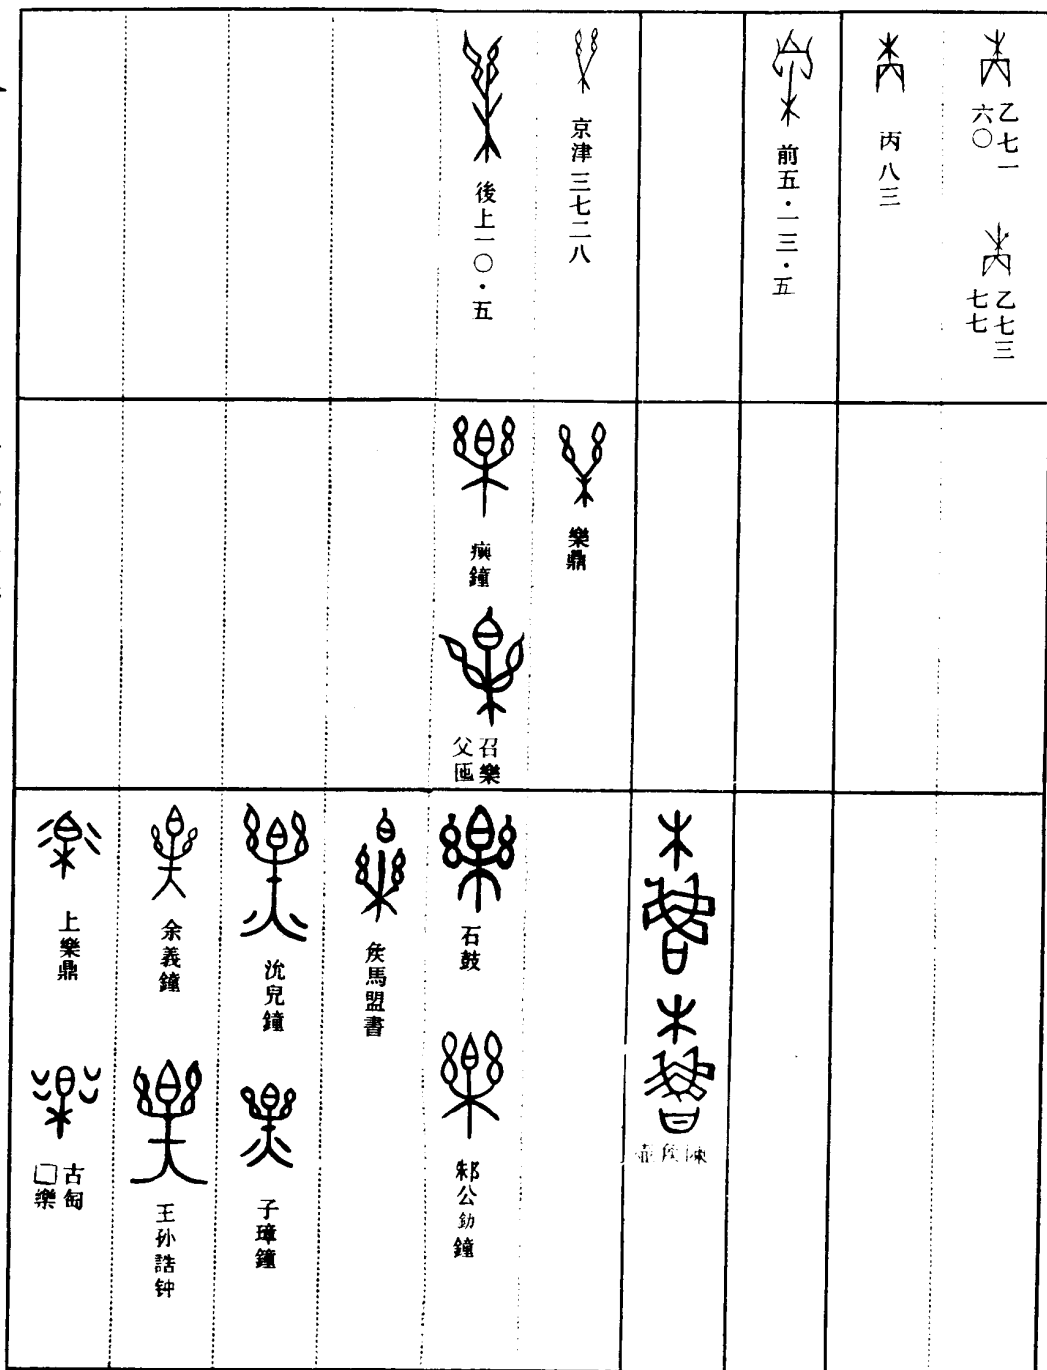 乙七一六〇
乙七三七七
丙八三
前五·一三·五
京津三七二八
後上一〇·五
樂鼎
𤼈鐘
召樂父匜
陳侯壺
石鼓
邾公釛鐘
侯馬盟書
沇兒鐘
子璋鐘
余義鐘
王孙誥钟
上樂鼎
古匋□樂